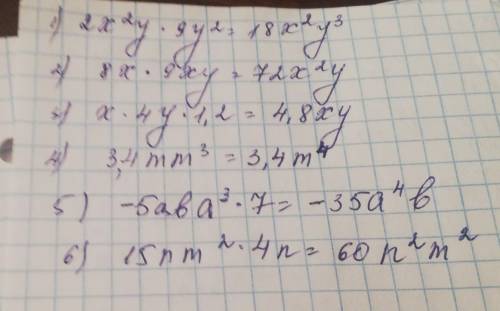 1) 2x²y · 9y² = 18x²y³
2) 8x · 9xy = 72x²y
3) x · 4y · 1,2 = 4,8xy
4) 3,4mm³ = 3,4m⁴
5) -5aba³ · 7 = -35a⁴b
6) 15nm² · 4n = 60n²m²